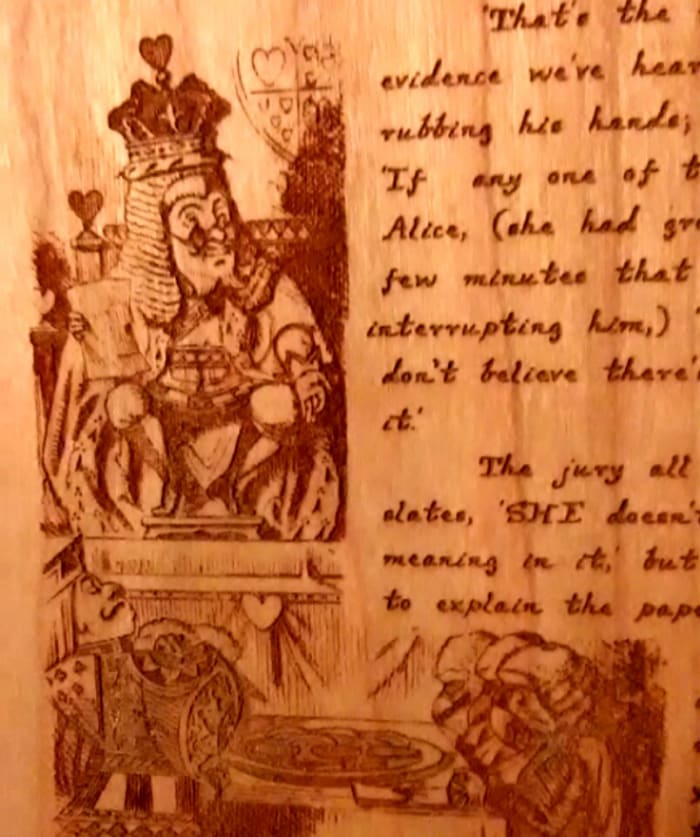 'That's the
evidence we've hear
rubbing his hands;
'If any one of t
Alice, (she had gr
few minutes that
interrupting him,)
don't believe there'
it.'
The jury all
slates, 'SHE doesn'
meaning in it,' but
to explain the pap